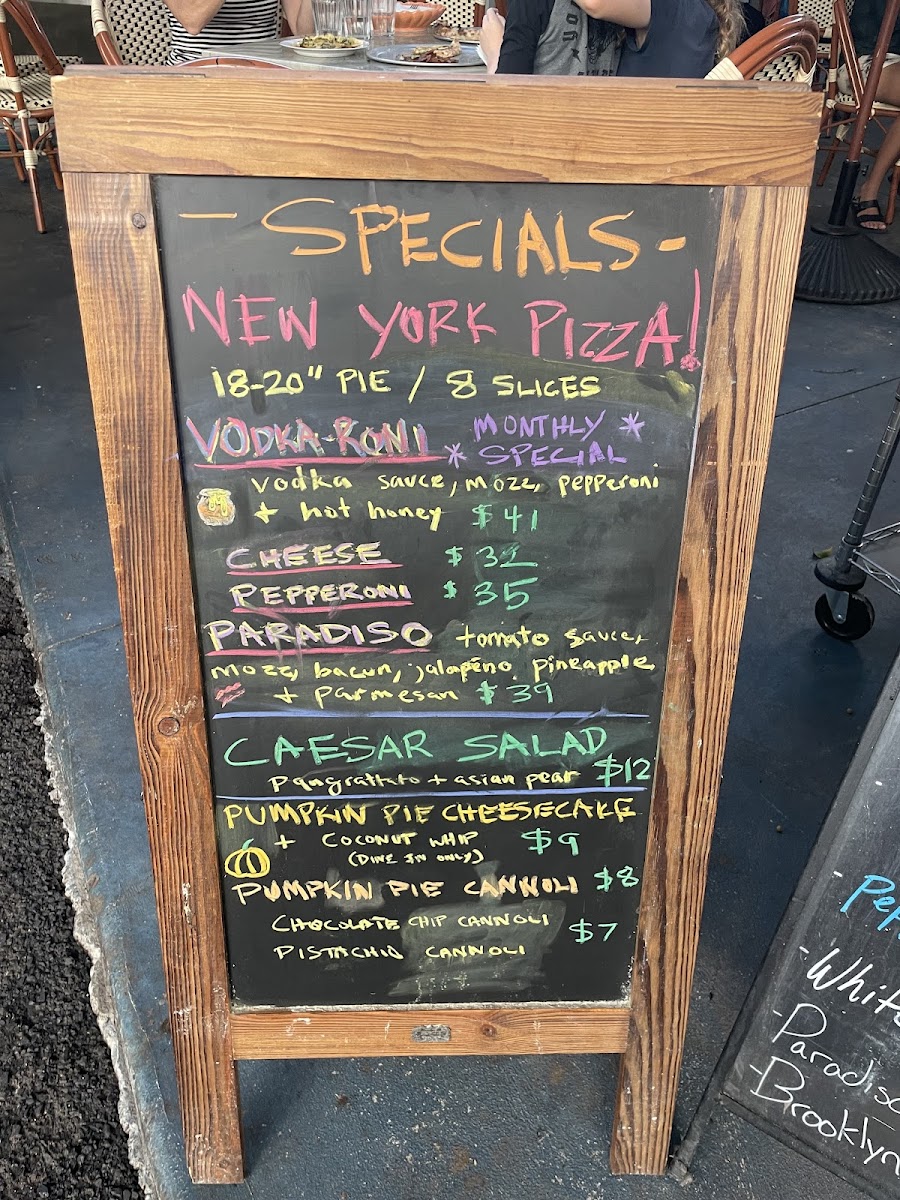 - SPECIALS -
NEW YORK PIZZA!
18-20" PIE / 8 SLICES
VODKA-RONI * MONTHLY *
SPECIAL
vodka sauce, mozz, pepperoni
+ hot honey $41
CHEESE $32
PEPPERONI $35
PARADISO tomato sauce,
mozz, bacon, jalapeño, pineapple,
+ parmesan $39
CAESAR SALAD
pangrattato + asian pear $12
PUMPKIN PIE CHEESECAKE
+ COCONUT WHIP $9
(DINE IN ONLY)
PUMPKIN PIE CANNOLI $8
CHOCOLATE CHIP CANNOLI $7
PISTACHIO CANNOLI
Pep
- White
- Paradiso
- Brooklyn